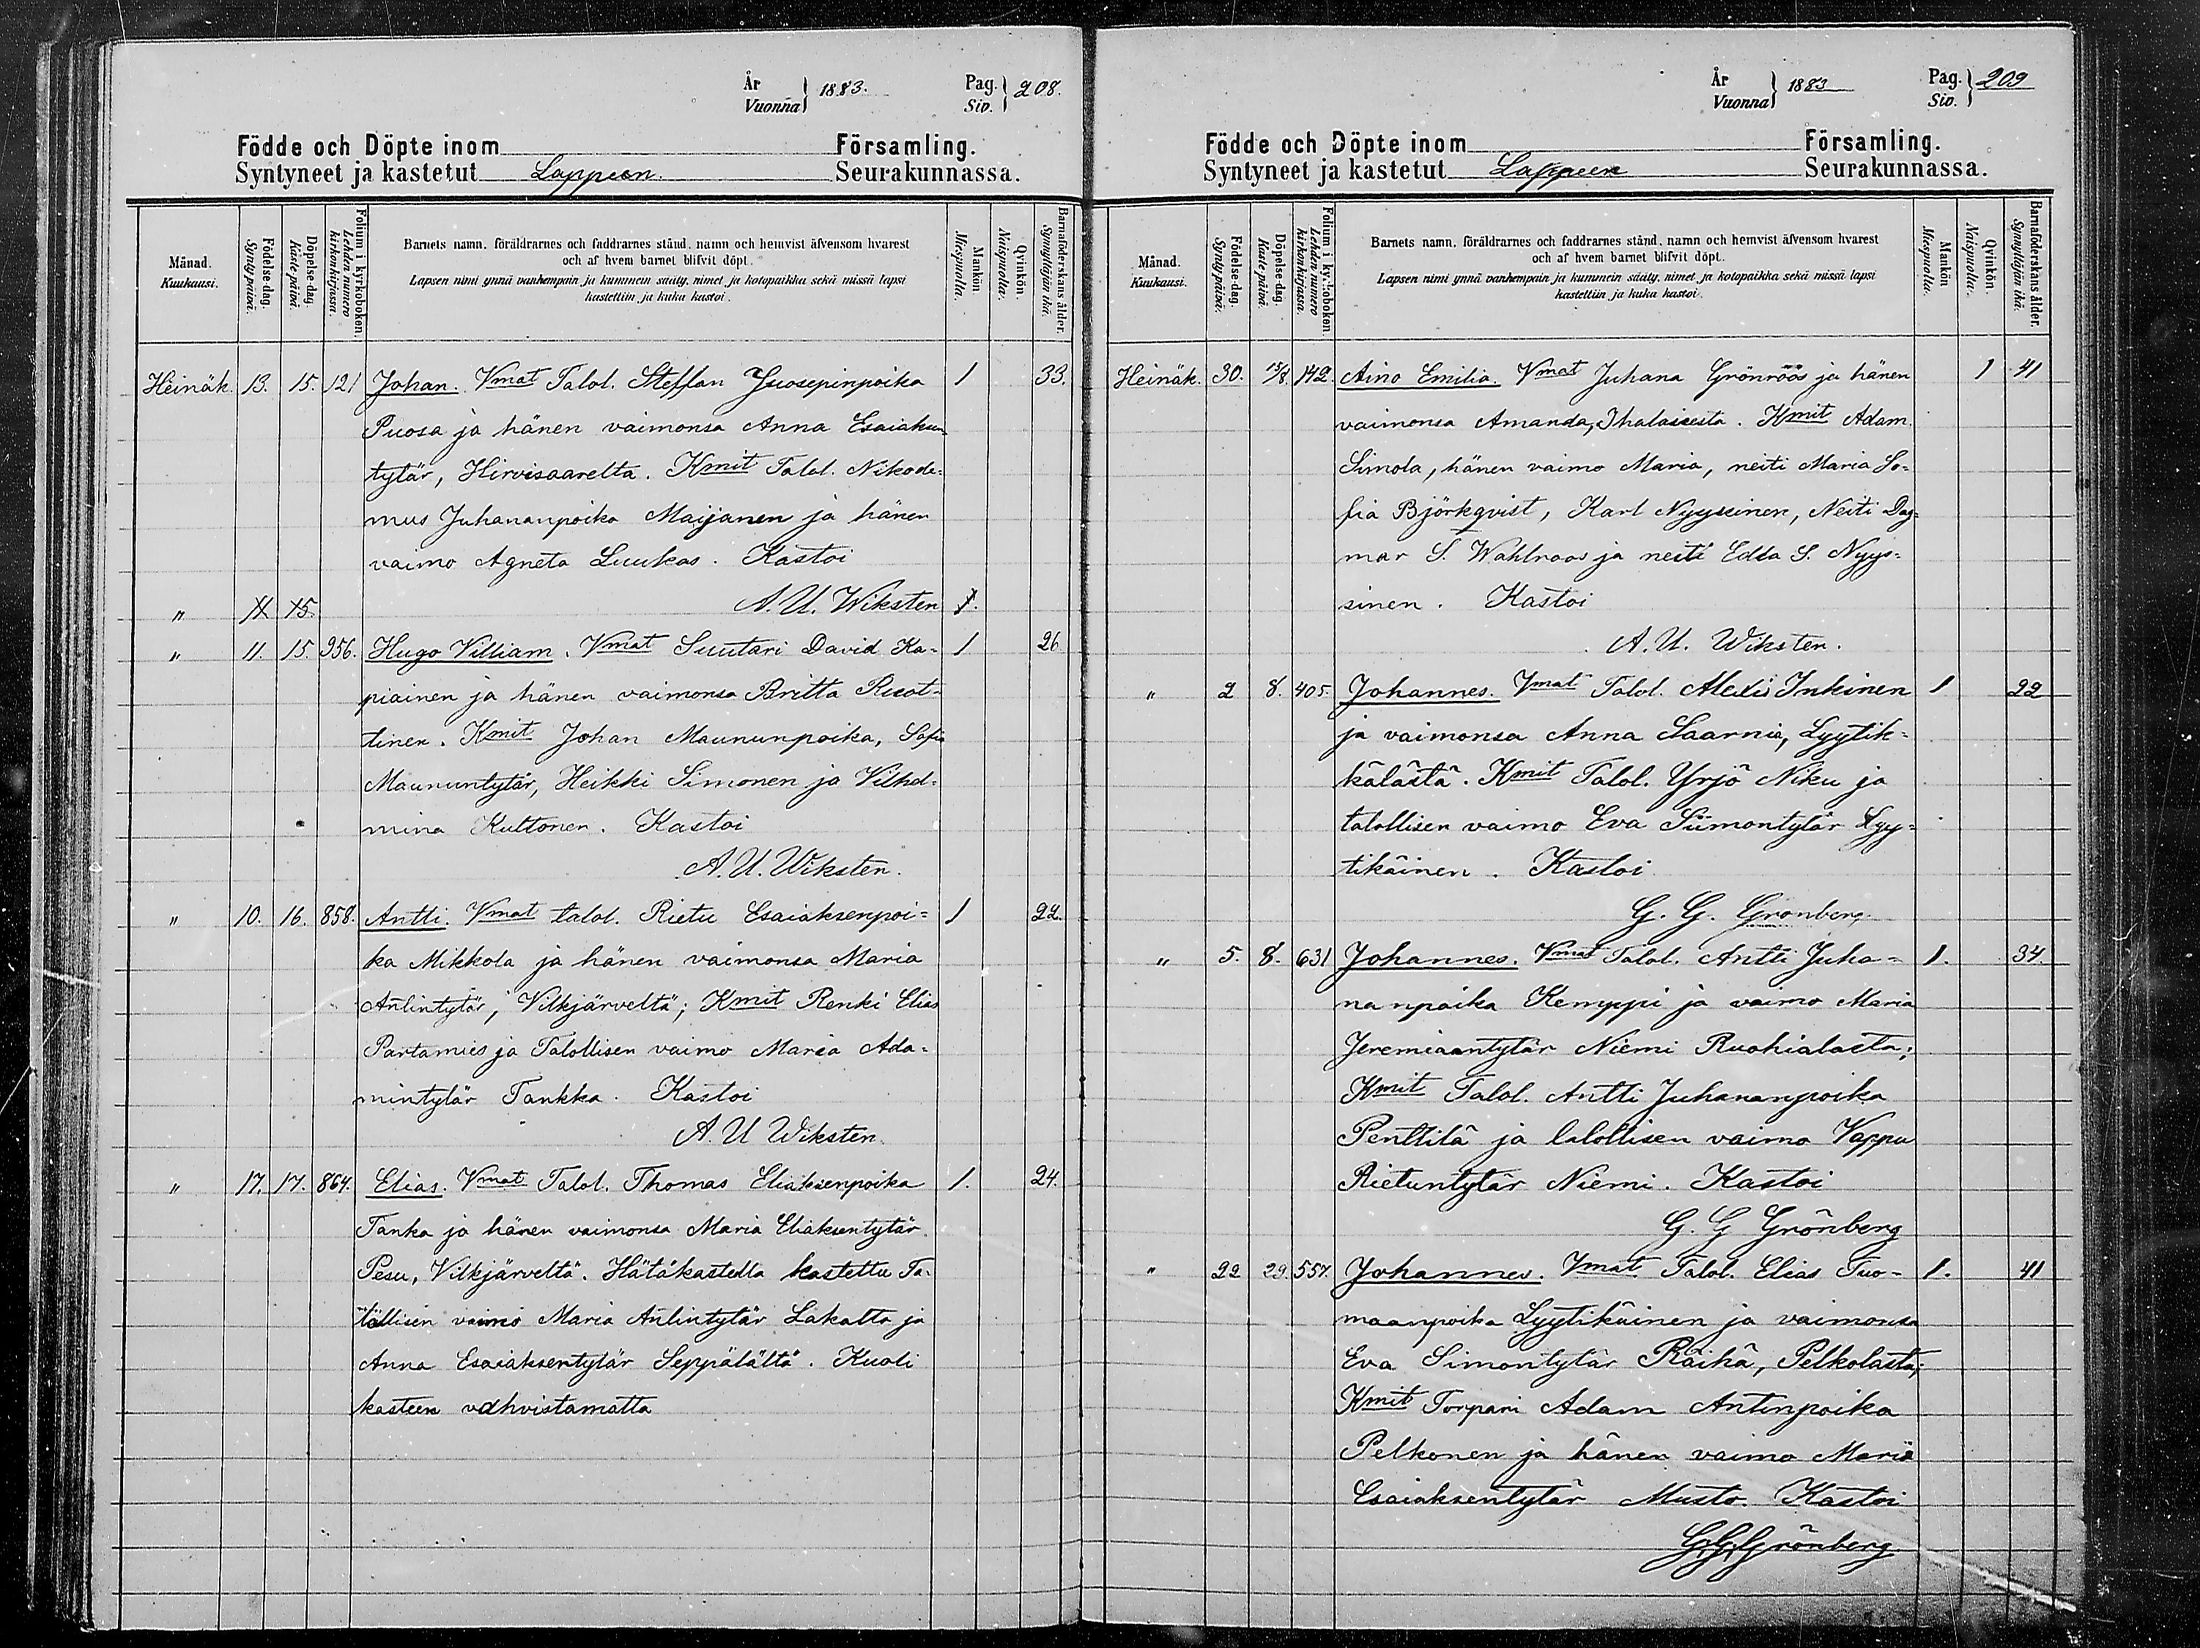 År
Vuonna } 1883. Pag.
Siv. } 208.
Födde och Döpte inom Församling.
Syntyneet ja kastetut Lappeen Seurakunnassa.
Månad.
Kuukausi.
Födelse-dag.
Syntypäivä.
Döpelse-dag.
Kastepäivä.
Folium i kyrkoboken.
Lehden numero kirkonkirjassa.
Barnets namn, föräldrarnes och faddrarnes stånd, namn och hemvist äfvensom hvarest
och af hvem barnet blifvit döpt.
Lapsen nimi ynnä vanhempain ja kummein sääty, nimet ja kotopaikka sekä missä lapsi
kastettiin ja kuka kastoi.
Mankön.
Miespuolia.
Qvinkön.
Naispuolia.
Barnaföderskans ålder.
Synnyttäjän ikä.
Heinäk. 13. 15. 121 Johan. Vmat Talol. Steffan Juosepinpoika 1 33.
Puosa ja hänen vaimonsa Anna Esaiaksen
tytär, Hirvisaarelta. Kmit Talol. Nikode-
mus Juhananpoika Maijanen ja hänen
vaimo Agneta Luukas. Kastoi
" 11 15. A. U. Wiksten 1.
" 11. 15. 956. Hugo Villiam. Vmat Suutari David Ka- 1 26
piainen ja hänen vaimonsa Britta Ruot-
tinen. Kmit Johan Maununpoika, Sofia
Maununtytär, Heikki Simonen ja Vilhel-
mina Kultonen. Kastoi
A. U. Wiksten.
" 10. 16. 858. Antti. Vmat talol. Rietu Esaiaksenpoi= 1 22.
ka Mikkola ja hänen vaimonsa Maria
Antintytär, Vilkjärveltä; Kmit Renki Elias
Partamies ja Talollisen vaimo Maria Ada-
mintytär Tankka. Kastoi
A. U Wiksten.
" 17. 17. 864. Elias. Vmat Talol. Thomas Eliaksenpoika 1. 24.
Tanka ja hänen vaimonsa Maria Eliaksentytär
Pesu, Vilkjärveltä. Hätäkasteella kastettu Ta-
lollisen vaimo Maria Antintytär Lakalta ja
Anna Esaiaksentytär Seppälältä. Kuoli
kasteen vahvistamatta
År
Vuonna } 1883 Pag.
Siv. } 209
Födde och Döpte inom Församling.
Syntyneet ja kastetut Lappeen Seurakunnassa.
Månad.
Kuukausi.
Födelse-dag.
Syntypäivä.
Döpelse-dag.
Kastepäivä.
Folium i kyrkoboken.
Lehden numero kirkonkirjassa.
Barnets namn, föräldrarnes och faddrarnes stånd, namn och hemvist äfvensom hvarest
och af hvem barnet blifvit döpt.
Lapsen nimi ynnä vanhempain ja kummein sääty, nimet ja kotopaikka sekä missä lapsi
kastettiin ja kuka kastoi.
Mankön.
Miespuolia.
Qvinkön.
Naispuolia.
Barnaföderskans ålder.
Synnyttäjän ikä.
Heinäk. 30. 142 Aino Emilia. Vmat Juhana Grönröös ja hänen 1 41
vaimonsa Amanda, Ihalaisesta. Kmit Adam
Simola, hänen vaimo Maria, neiti Maria So-
fia Björkqvist, Karl Nyyssinen, Neiti Dag-
mar S. Wahlroos ja neiti Edla S. Nyys-
sinen. Kastoi
A. U. Wiksten.
" 2 8. 405. Johannes. Vmat Talol. Alexis Inkinen 1 22
ja vaimonsa Anna Saarnia, Lyytik-
kälästä. Kmit Talol. Yrjö Niku ja
talollisen vaimo Eva Siimontytär Lyy-
tikäinen. Kastoi
G. G. Grönberg.
" 5. 8. 631 Johannes. Vmat Talol. Antti Juha- 1. 34.
nanpoika Kemppi ja vaimo Maria
Jeremiaantytär Niemi Ruohialasta;
Kmit Talol. Antti Juhananpoika
Penttilä ja talollisen vaimo Vappu
Rietuntytär Niemi. Kastoi
G. G Grönberg
" 22 29. 557. Johannes. Vmat Talol. Elias Tuo- 1. 41
maanpoika Lyytikäinen ja vaimonsa
Eva Simontytär Räihä, Pelkolasta;
Kmit Torpari Adam Antinpoika
Pelkonen ja hänen vaimo Maria
Esaiaksentytär Musto. Kastoi
G. G. Grönberg